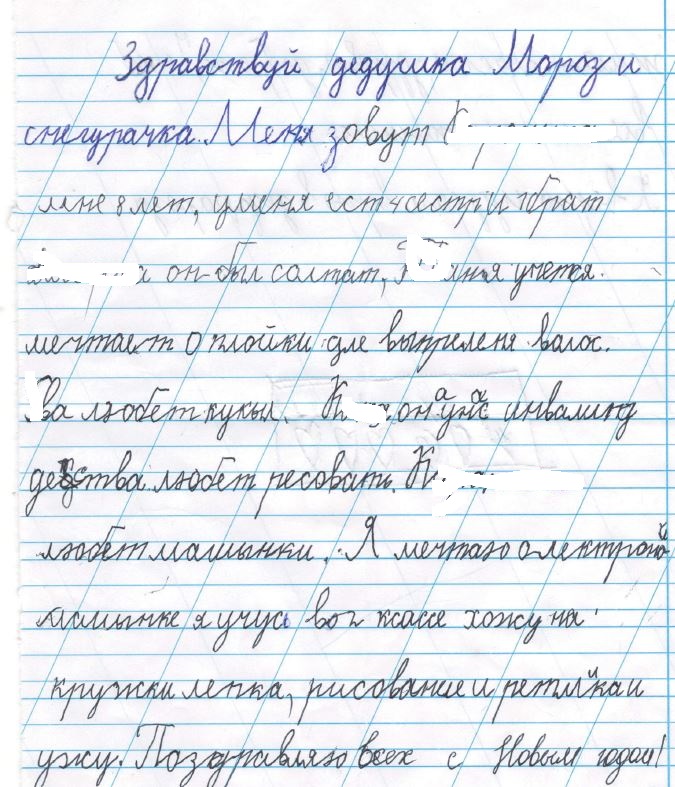 Здравствуй дедушка Мороз и
снегурачка. Меня зовут К
мне 8 лет, уменя ест 4 сестры и 1 брат
а он-был солтат, я учется.
мечтает о плойки дле выпреленя валос.
ва любет куклы. К он а у нас инвалинд
детства любет ресовать. К
любет машынки. Я мечтаю о лектроной
масшынке я учусь во 2 классе хожу на
кружки лепка, рисование и
ужу. Поздравляю всех с Новым годом!